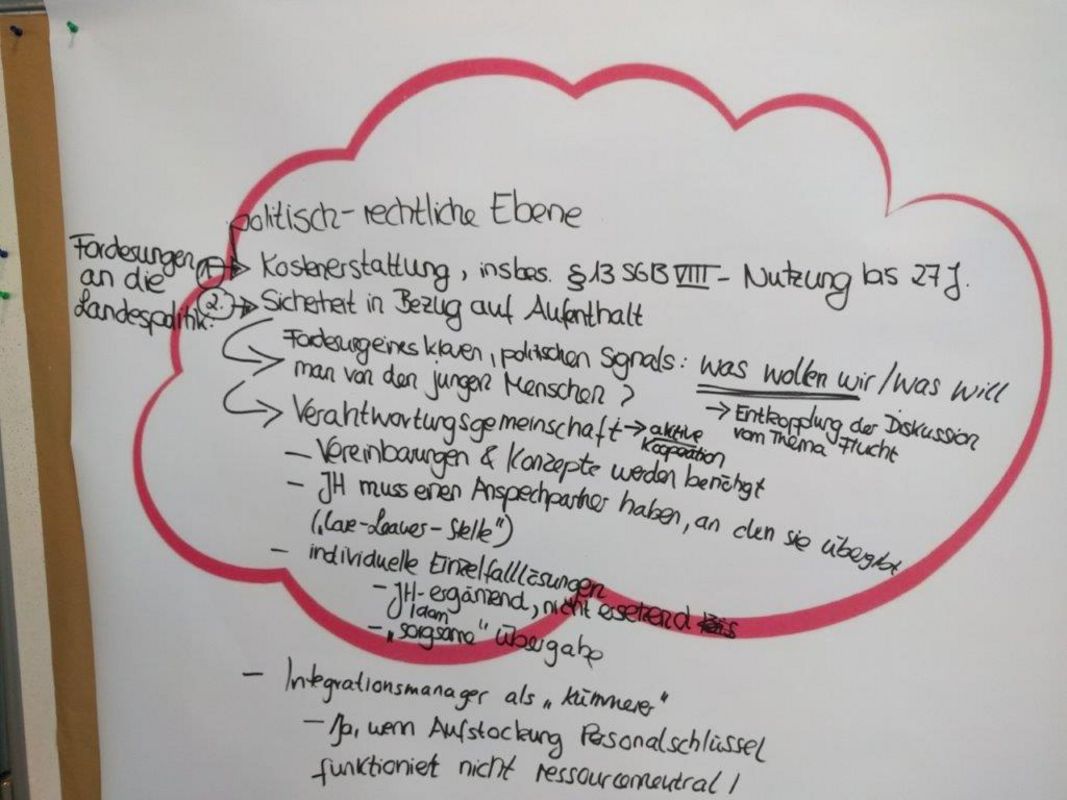 politisch-rechtliche Ebene
Forderungen
an die
Landespolitik:
1. → Kostenerstattung, insbes. §13 SGB VIII - Nutzung bis 27 J.
2. → Sicherheit in Bezug auf Aufenthalt
Forderung eines klaren, politischen Signals: was wollen wir/was will
man von den jungen Menschen?
→ Entkopplung der Diskussion
vom Thema Flucht
Verantwortungsgemeinschaft → aktive
Kooperation
- Vereinbarungen & Konzepte werden benötigt
- JH muss einen Ansprechpartner haben, an den sie übergibt
("Care-Leaver-Stelle")
- individuelle Einzelfalllösungen
- JH-ergänzend, nicht ersetzend
- "sorgsame" Übergabe
- Integrationsmanager als "Kümmerer"
- Ja, wenn Aufstockung Personalschlüssel
funktioniert nicht ressourcenneutral!